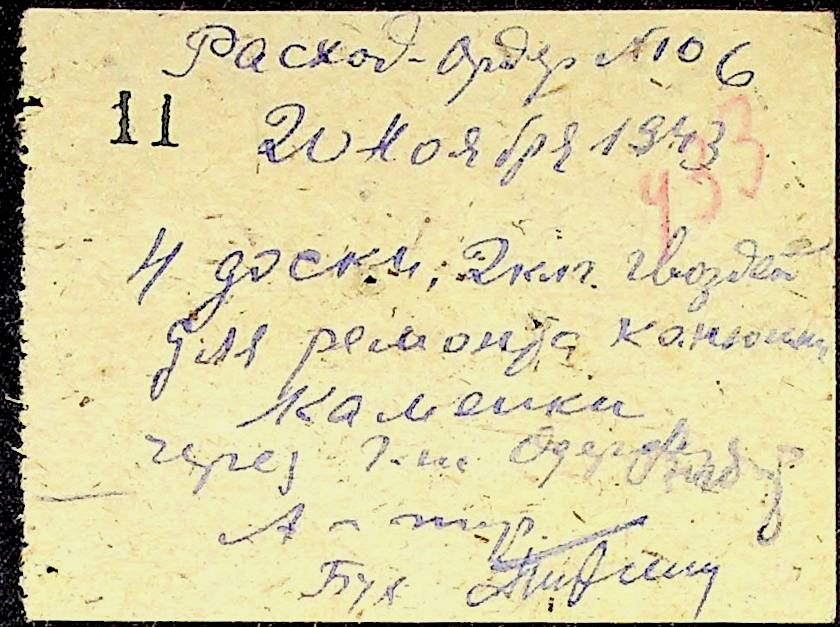 Расход-ордер №106
11
20 Ноября 1943
433
4 доски, 2 клг. гвоздей
для ремонта конюшни
Каменки
через
Бух